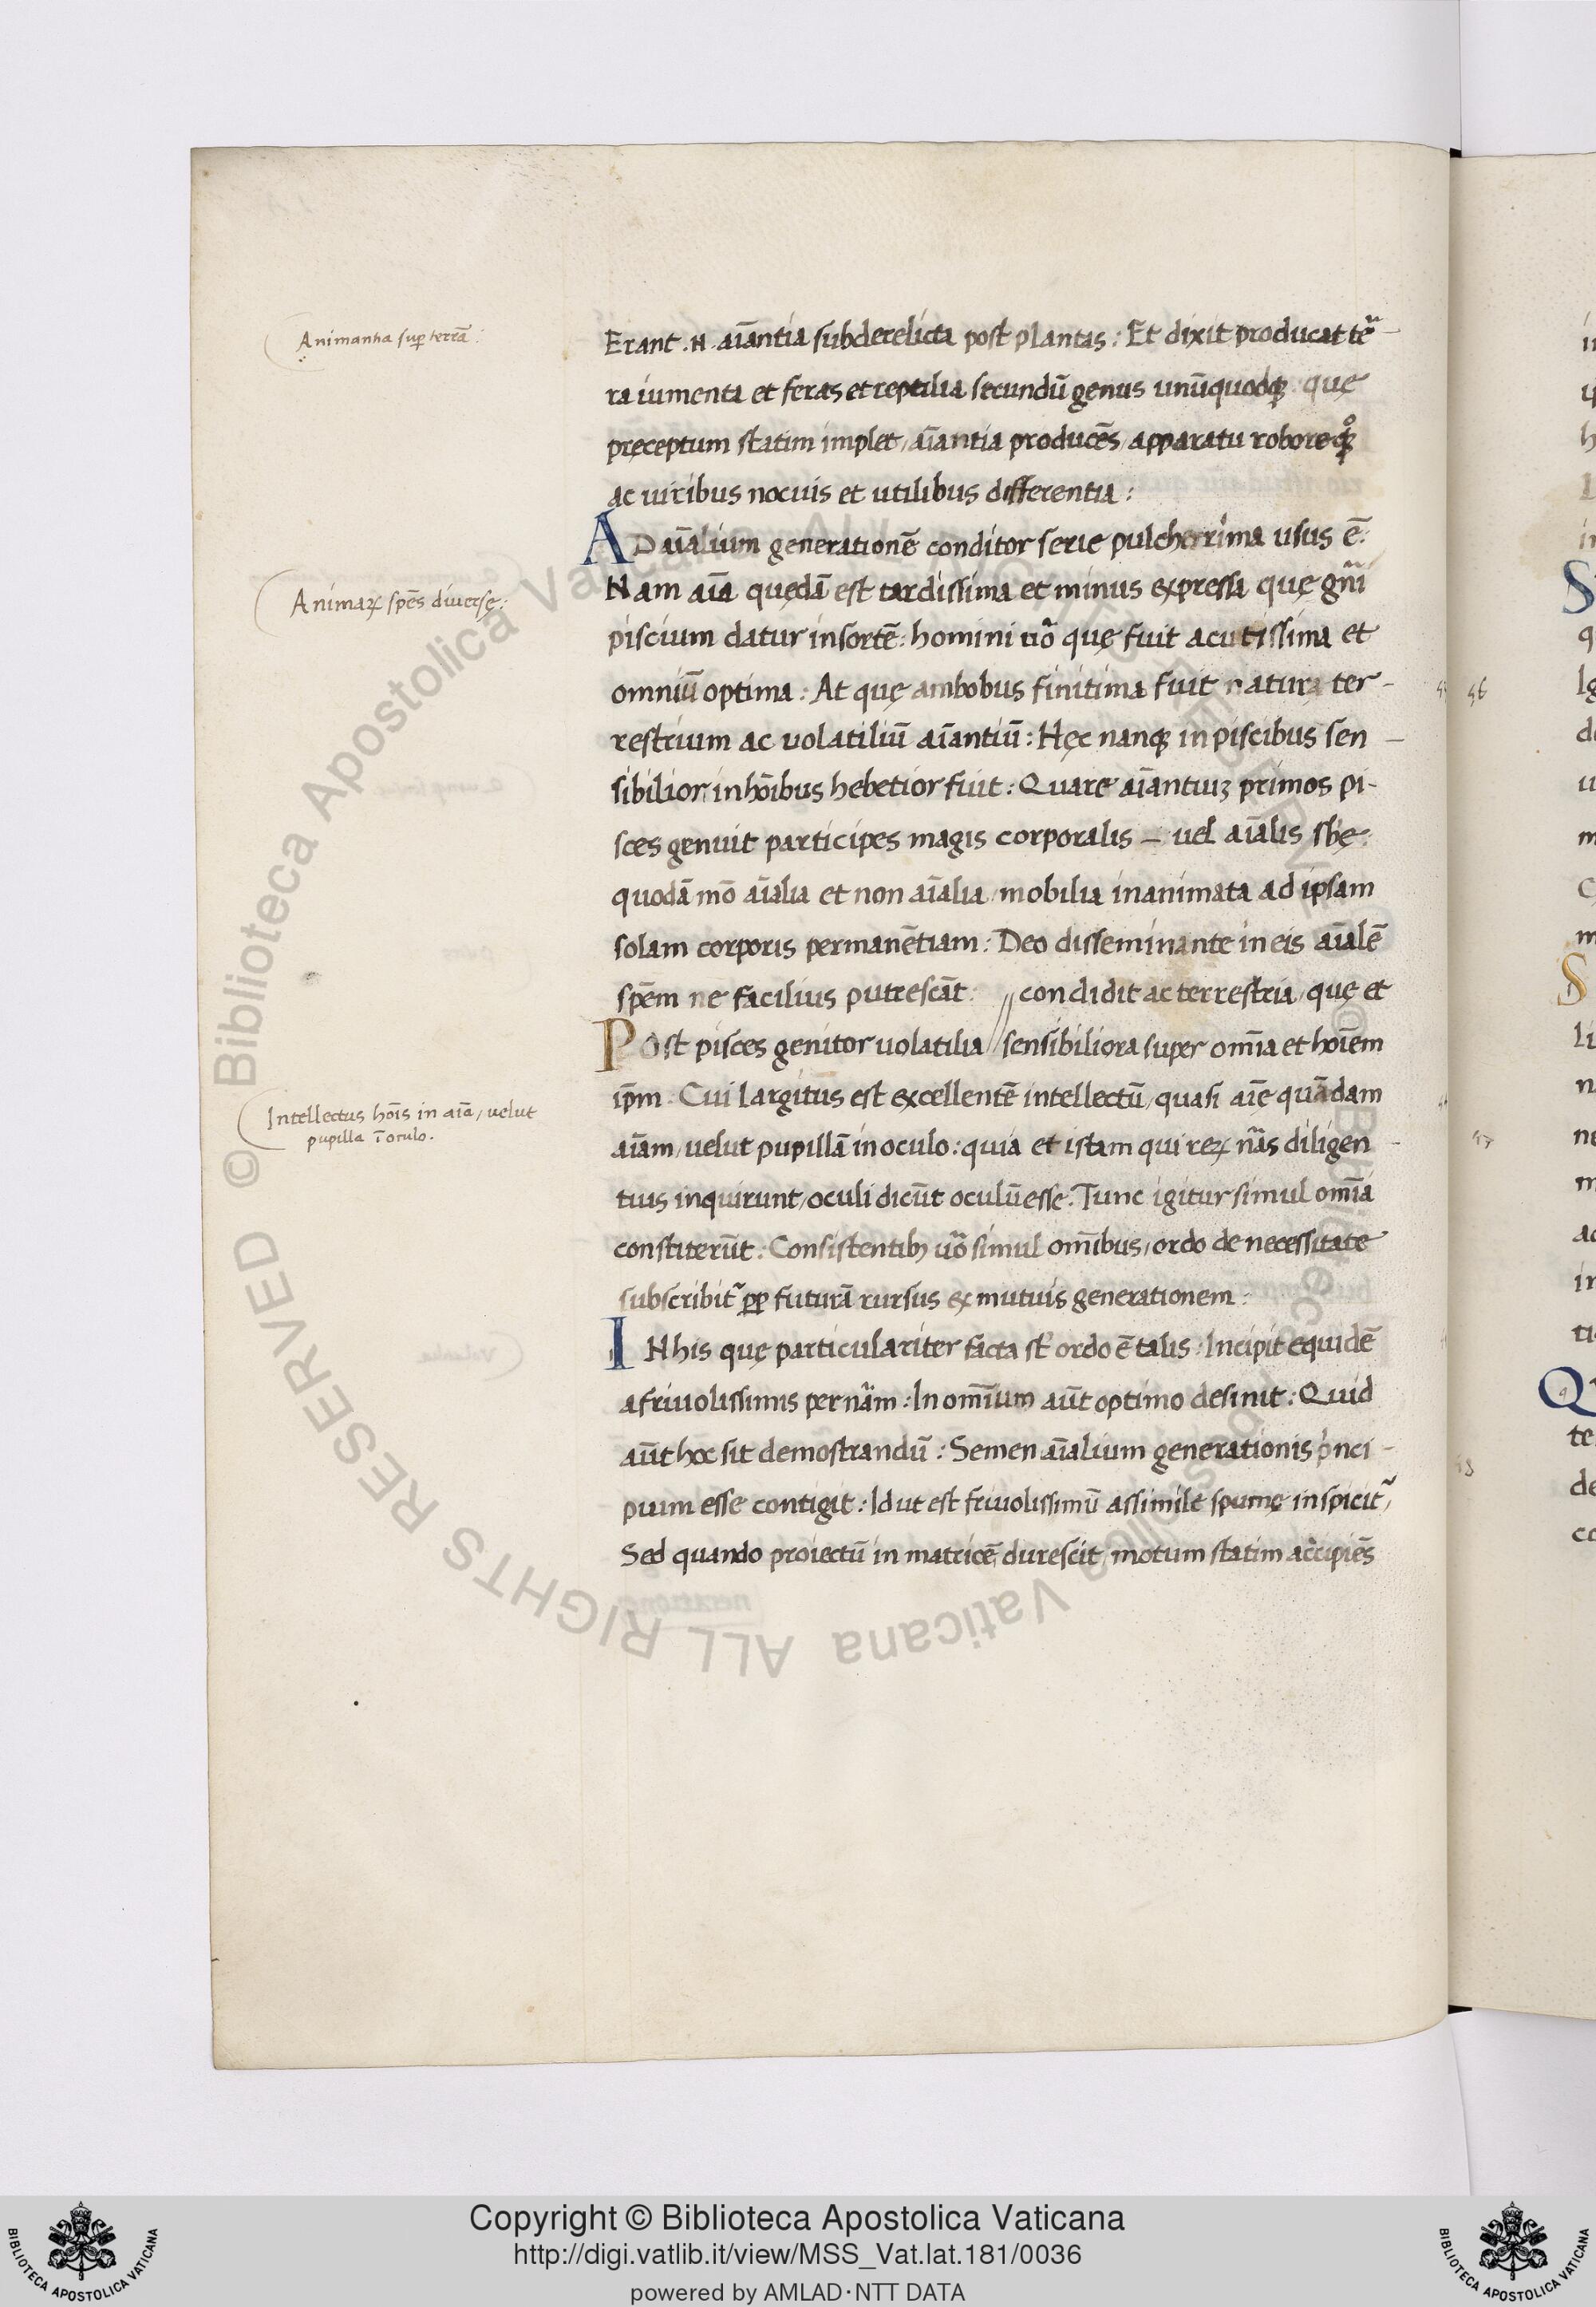 Animantia sup terrā:
Erant .N. aīantia subderelicta post plantas: Et dixit producat tr̄
ra iumenta et feras et reptilia secundū genus unūquodq; quę
pręceptum statim implet, aīantia producēs, apparatu robore
ac uiribus nocuis et utilibus differentia:
AD aīalium generationē conditor serie pulcherrima usus ē:
Animaꝝ spēs diuersę:
Nam aīa quędā est tardissima et minus expressa quę gn̄i
piscium datur in sortē: homini uō quę fuit acutissima et
omniū optima: At quę ambobus finitima fuit natura ter-
restrium ac uolatiliū aīantiū: Hęc nanq; in piscibus sen-
sibilior, in hōibus hebetior fuit: Quare aīantiuȝ primos pi-
sces genuit participes magis corporalis — uel aīalis sb̄ę:
quodā mō aīalia et non aīalia, mobilia inanimata ad ipsam
solam corporis permanētiam: Deo disseminante in eis aīalē
spēm ne facilius putrescāt: // condidit ac terrestria, quę et
POst pisces genitor uolatilia // sensibiliora super omīa et hoīem
ip̄m. Cui largitus est excellentē intellectū, quasi aīę quādam
Intellectus hōis in aīa, velut
pupilla ī oculo.
aīam, uelut pupillā in oculo: quia et istam qui reꝝ nāas diligen-
tius inquirunt, oculi dicūt oculū esse. Tunc igitur simul omīa
constiterūt: Consistentibȝ uō simul omībus, ordo de necessitate
subscribit᷑ ꝓꝑ futurā rursus ex mutuis generationem:
IN his quę particulariter facta st̄ ordo ē talis: Incipit equidē
a friuolissimis per nām: In omīum aūt optimo desinit: Quid
aūt hoc sit demostrandū: Semen aīalium generationis p̓nci-
pium esse contigit: Id ut est friuolissimū assimile spumę inspicit᷑,
Sed quando proiectū in matricē, durescit, motum statim accipiēs
56
57
© Biblioteca Apostolica Vaticana ALL RIGHTS RESERVED © Biblioteca Apostolica Vaticana ALL RIGHTS RESERVED
Copyright © Biblioteca Apostolica Vaticana
http://digi.vatlib.it/view/MSS_Vat.lat.181/0036
powered by AMLAD·NTT DATA
BIBLIOTECA APOSTOLICA VATICANA
BIBLIOTECA APOSTOLICA VATICANA